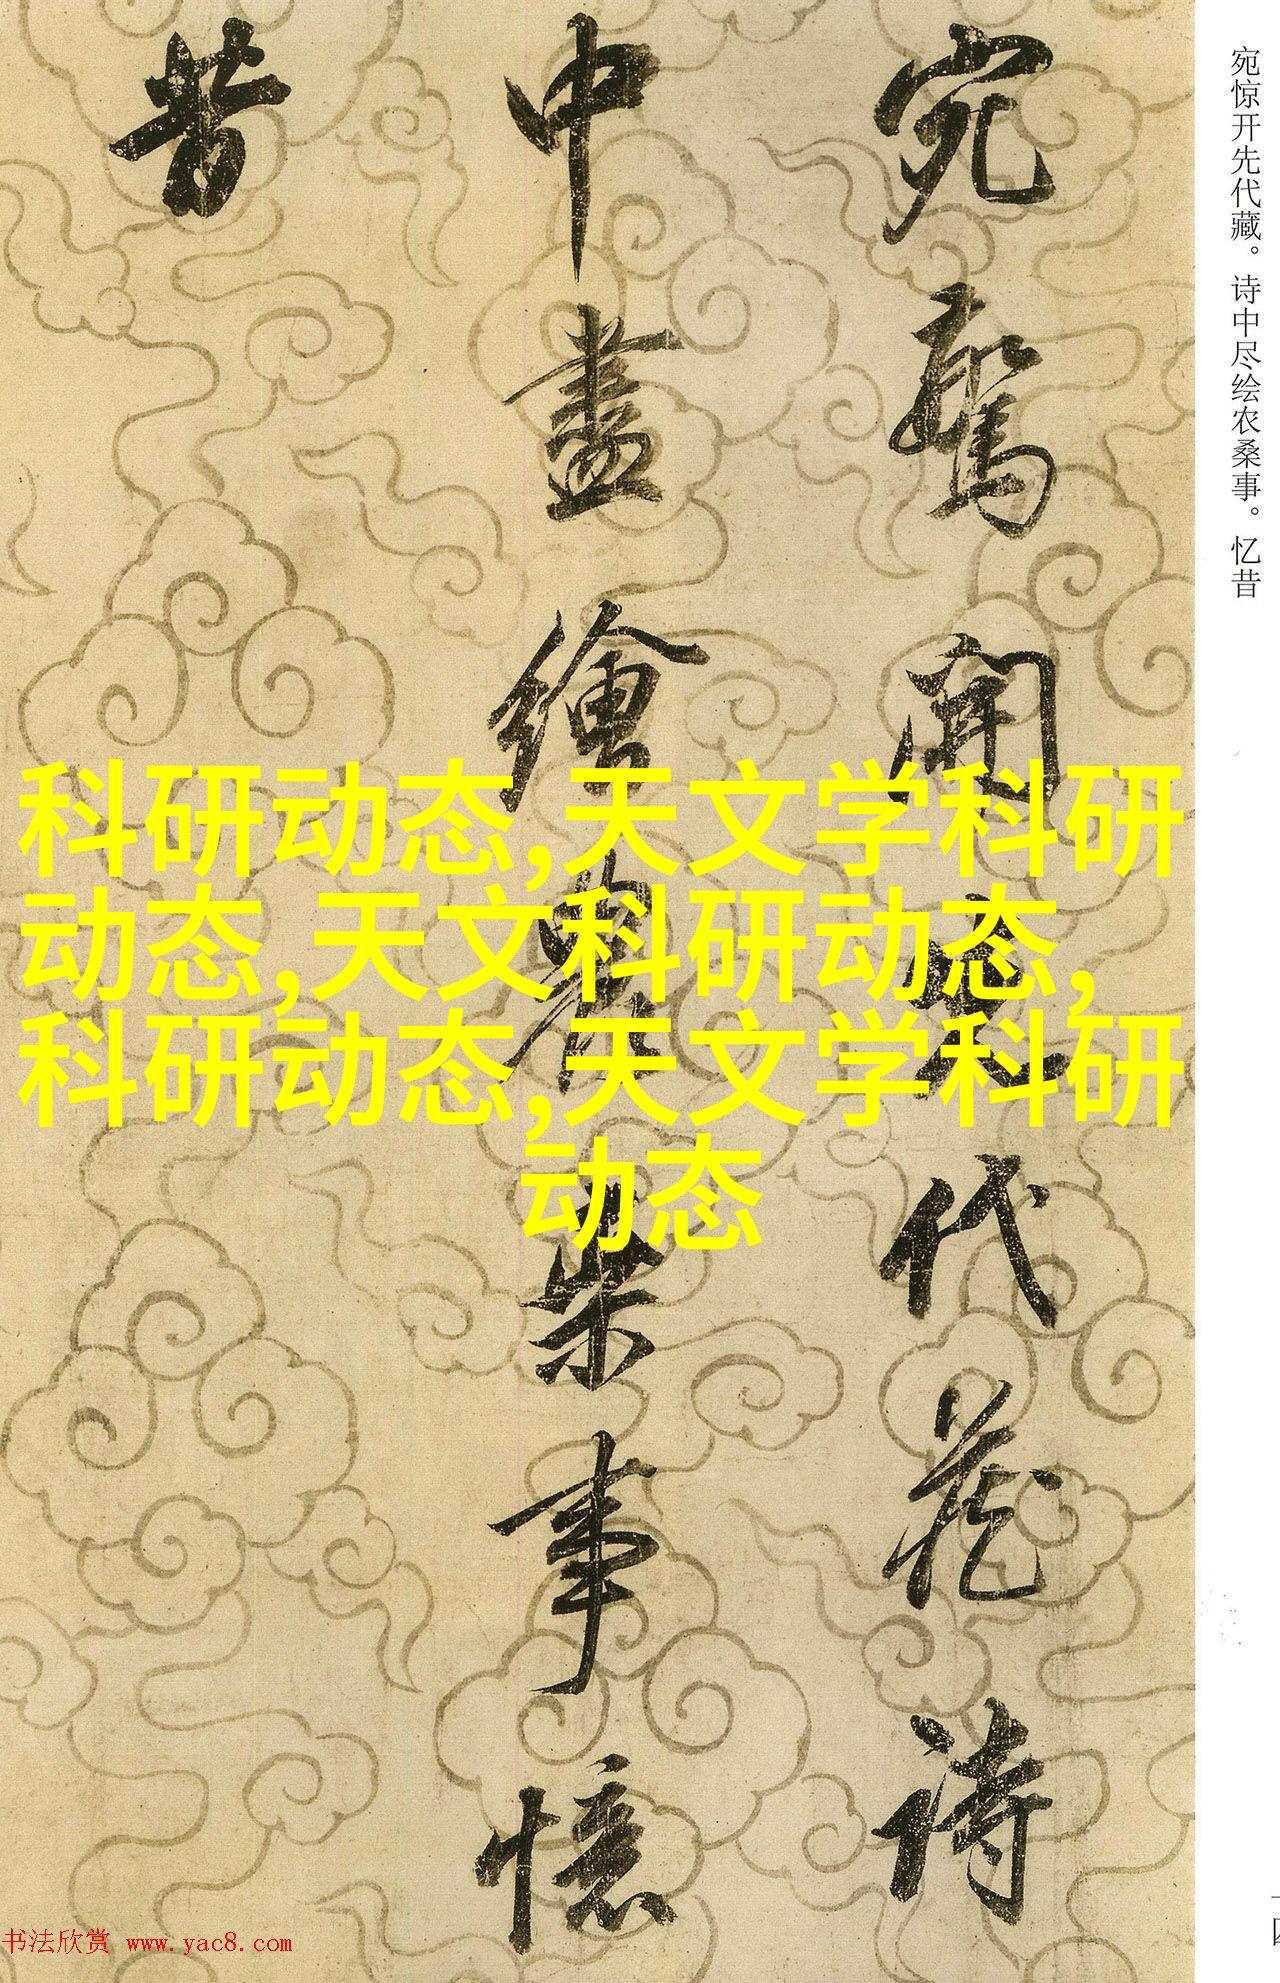 宛驚開先代蔵詩
中盡繪農桒事憶
昔
宛惊开先代藏。诗中尽绘农桑事。忆昔
科研动态,天文学科研
动态,天文科研动态,
科研动态,天文学科研
动态
书法欣赏 www.yac8.com